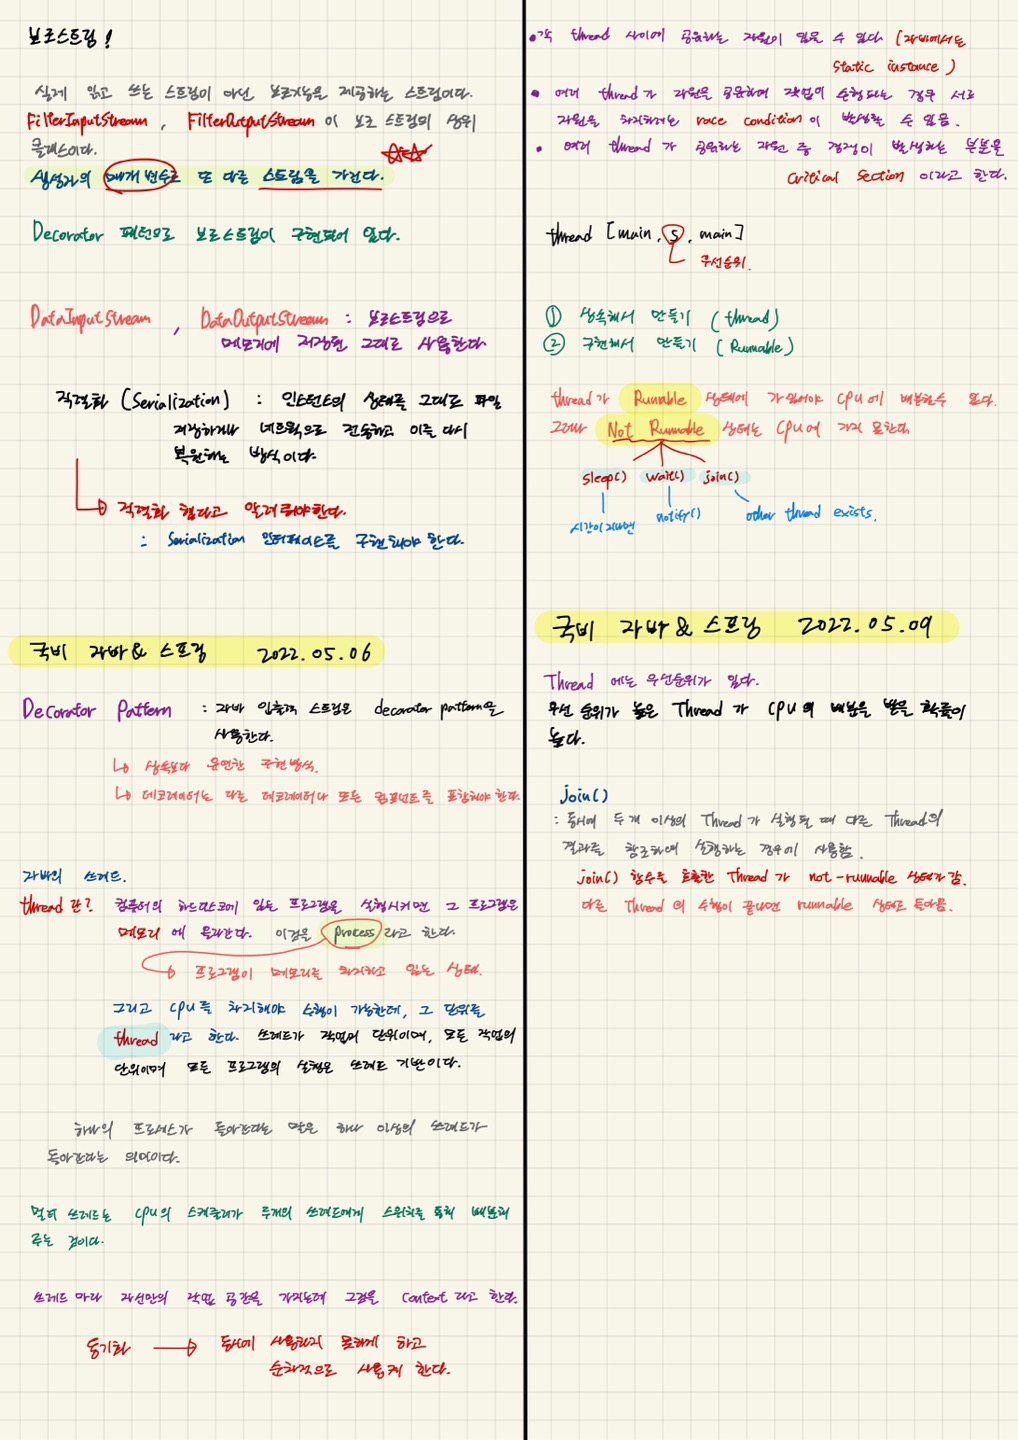 보조스트림!
실제 읽고 쓰는 스트림이 아닌 보조기능을 제공하는 스트림이다.
FilterInputStream, FilterOutputStream 이 보조 스트림의 상위
클래스이다.
생성자의 매개 변수로 또 다른 스트림을 가진다.
Decorator 패턴으로 보조스트림이 구현되어 있다.
DataInputStream, DataOutputStream : 보조스트림으로
메모리에 저장된 그대로 사용한다
직렬화 (Serialization) : 인스턴스의 상태를 그대로 파일
저장하거나 네트웍으로 전송하고 이를 다시
복원하는 방식이다.
직렬화 한다고 알려줘야한다.
: Serialization 인터페이스를 구현해야 한다.
국비 자바 & 스프링 2022.05.06
Decorator Pattern : 자바 입출력 스트림은 decorator pattern을
사용한다.
↳ 상속보다 유연한 구현방식.
↳ 데코레이터는 다른 데코레이터나 또는 컴포넌트를 포함해야 한다.
자바의 쓰레드.
thread란? 컴퓨터의 하드디스크에 있는 프로그램을 실행시키면 그 프로그램은
메모리에 올라간다. 이것을 process 라고 한다.
→ 프로그램이 메모리를 차지하고 있는 상태.
그리고 CPU를 차지해야 수행이 가능한데, 그 단위를
thread 라고 한다. 쓰레드가 작업의 단위이며, 모든 작업의
단위이며 모든 프로그램의 실행은 쓰레드 기반이다.
하나의 프로세스가 돌아간다는 말은 하나 이상의 쓰레드가
돌아간다는 의미이다.
멀티 쓰레드는 CPU의 스케줄러가 두개의 쓰레드에게 스위치를 통해 배분해
주는 것이다.
쓰레드 마다 자신만의 작업 공간을 가지는데 그것을 context라고 한다.
동기화 → 동시에 사용하지 못하게 하고
순차적으로 사용케 한다.
• 각 thread 사이에 공유하는 자원이 있을 수 있다 (자바에서는
static instance)
• 여러 thread가 자원을 공유하여 작업이 수행되는 경우 서로
자원을 차지하려는 race condition이 발생할 수 있음.
• 여러 thread가 공유하는 자원 중 경쟁이 발생하는 부분을
critical section 이라고 한다.
thread [main, 5, main]
우선순위.
① 상속해서 만들기 (thread)
② 구현해서 만들기 (Runnable)
thread가 Runable 상태에 가 있어야 CPU에 배분할수 있다.
그러나 Not Runnable 상태는 CPU에 가지 못한다.
sleep() wait() join()
시간이 지나면 notify() other thread exists.
국비 자바 & 스프링 2022.05.09
Thread 에는 우선순위가 있다.
우선 순위가 높은 Thread 가 CPU의 배분을 받을 확률이
높다.
join()
: 동시에 두 개 이상의 Thread가 실행될 때 다른 Thread의
결과를 참조하여 실행하는 경우에 사용함.
join() 함수를 호출한 Thread가 not-runnable 상태가 감.
다른 Thread의 수행이 끝나면 runnable 상태로 돌아옴.